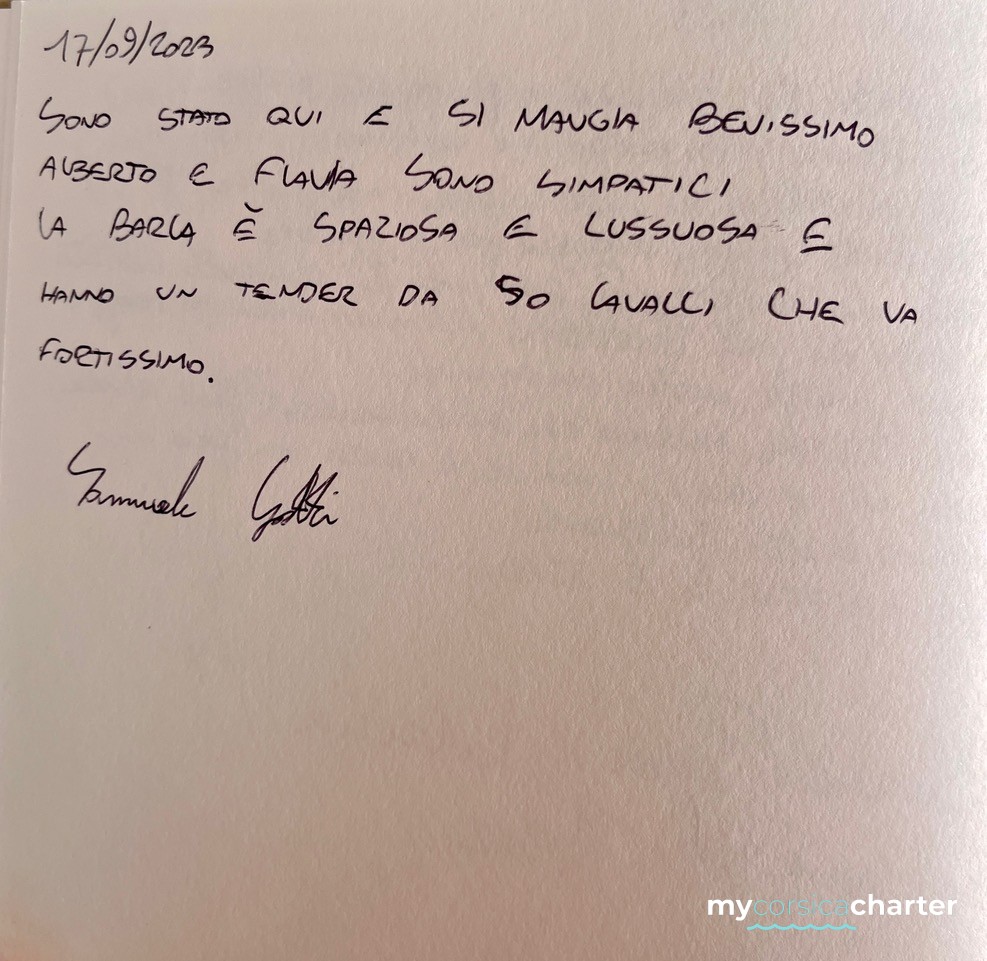 17/09/2023
SONO STATO QUI E SI MANGIA BENISSIMO
ALBERTO E FLAVIA SONO SIMPATICI
LA BARCA È SPAZIOSA E LUSSUOSA E
HANNO UN TENDER DA 50 CAVALLI CHE VA
FORTISSIMO.
Samuele
mycorsicacharter